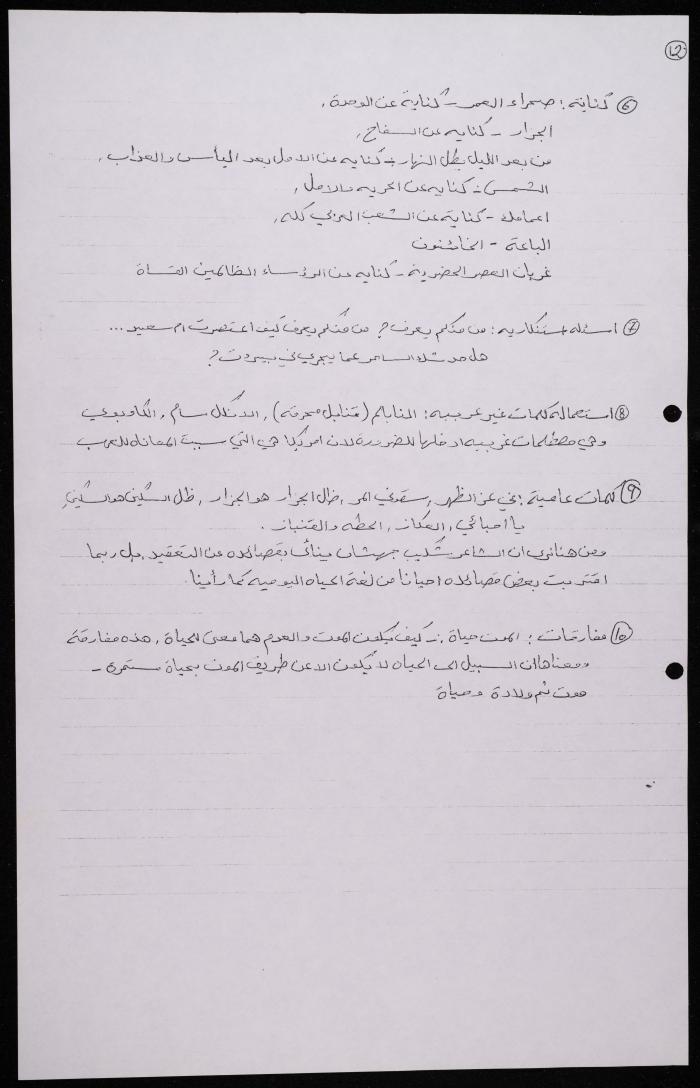 12
⑥ كناية: صحراء العمر - كناية عن الوحدة,
الجزار - كنايه عن السفاح,
من بعد الليل يطل النهار - كنايه عن الامل بعد اليأس والعذاب,
الشمس - كنايه عن الحريه والامل,
اعمامك - كناية عن الشعب العربي كله,
الباعة - الخائنون
غربان العصر الحضرية - كنايه عن الرؤساء الظالمين القساة
⑦ اسئله استنكاريه: من منكم يعرف? من منكم يعرف كيف اعتصرت ام سعيد ...
هل حدثك السامر عما يجري في بيروت?
⑧ استعماله كلمات غير عربيه: النابالم (قنابل محرقه), الانكل سام, الكاوبوي
وهي مصطلحات غربيه ادخلها للضرورة لان امريكا هي التي سببت المعاناه للعرب
⑨ كلمات عامية: في عز الظهر, سقوني المر, ظل الجزار هو الجزار, ظل السكين هو السكين,
يا احبائي, العكاز, الحطه والقنباز.
ومن هنا نرى ان الشاعر شكيب جهشان ينأى بقصائده عن التعقيد, بل ربما
اقتربت بعض قصائده احيانا من لغة الحياه اليوميه كما رأينا.
⑩ مفارقات: الموت حياة - كيف يكون الموت والعدم هما معنى للحياة, هذه مفارقة
ومعناها ان السبيل الى الحياه لا يكون الا عن طريق الموت بحياة مستمره -
موت ثم ولادة وحياة